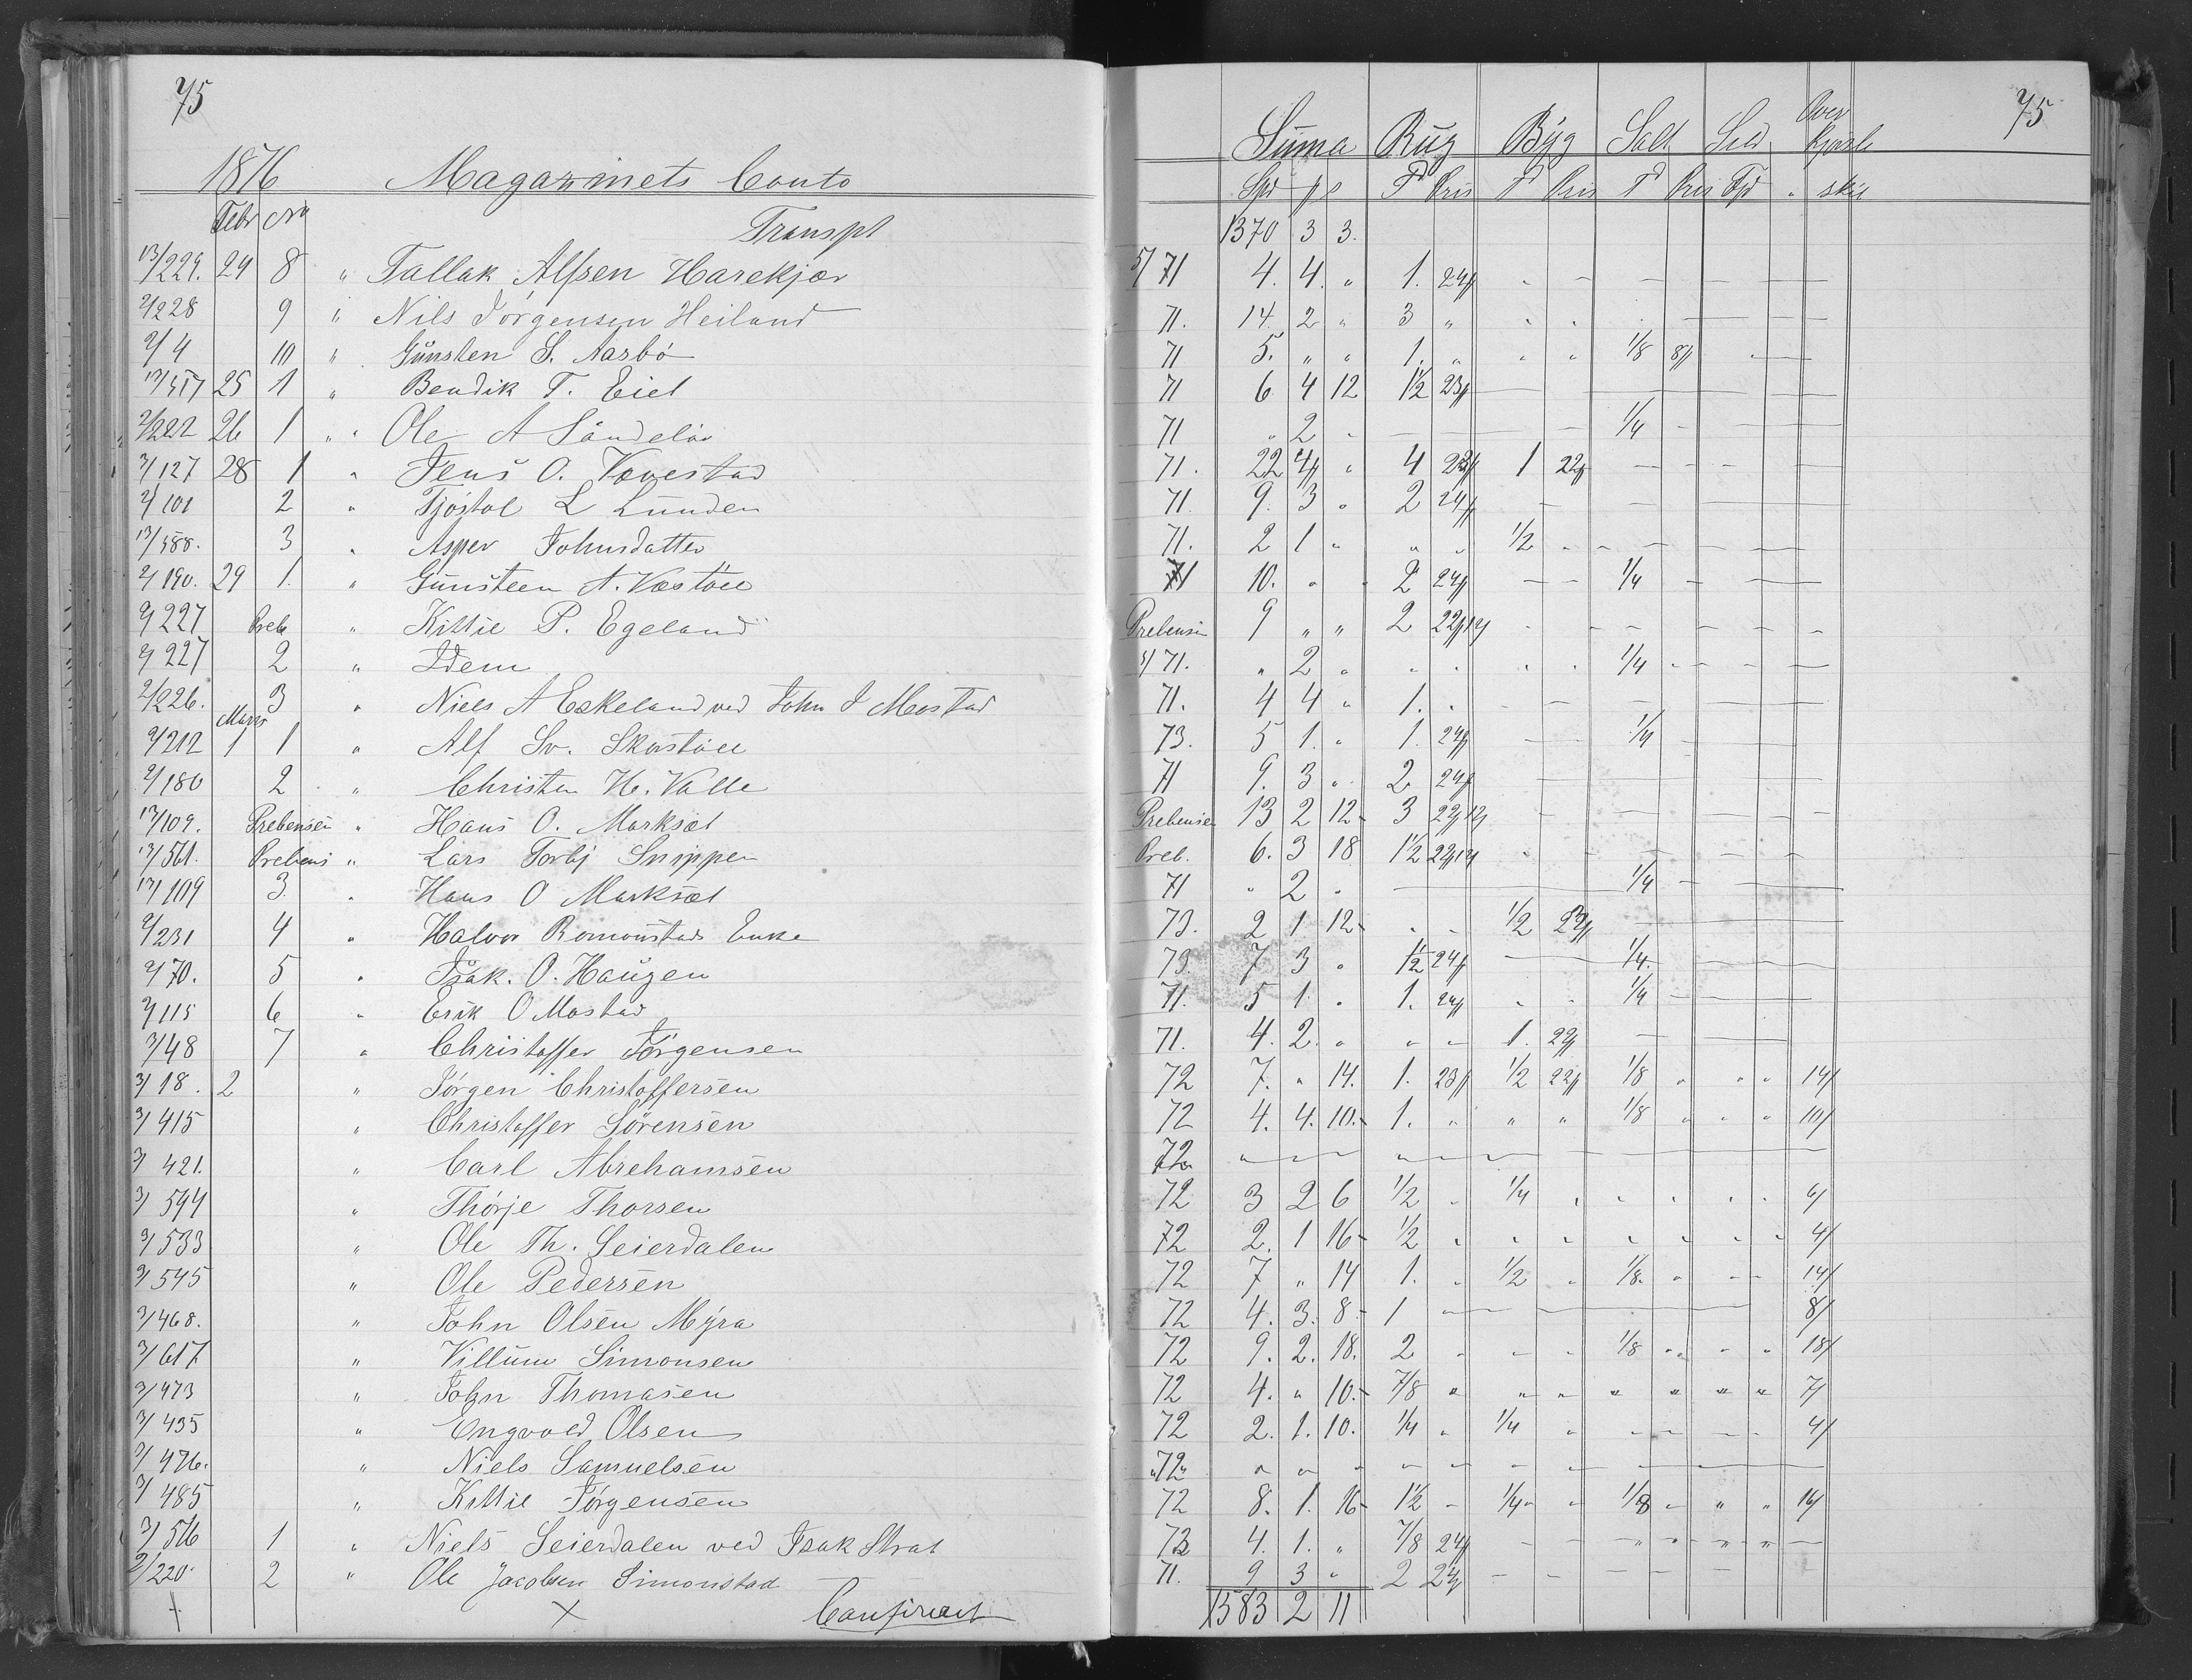 75
1876 Magazinets Conto
Febr No
Transpt
13/229. 24 8 " Tallak Alfsen Harekjær
2/228 9 " Nils Jörgensen Heiland
2/4 10 " Gunsten S. Aasbö
13/517 25 1 " Bendik T. Eiet
2/222 26 1 " Ole A
3/127 28 1 " Jens O. Vovestad
2/101 2 " Tjöstol L Lunden
13/588. 3 " Asper Johnsdatter
2/190. 29 1. " Gunsteen A. Væstöel
2/227 Preb " Kittil P. Egeland
2/227 2 " Idem
2/226. 3 " Niels A Eskeland ved John J Mostad
Marts
2/212 1 1 " Alf Sv. Skorstöel
2/180 2 " Christen H. Valle
13/109. Prebensen " Hans O. Marksæt
13/561. Prebens " Lars Torbj Snippen
13/109 3. " Hans O Marksæt
2/231 4 " Halvor Romonstads Enke
2/70. 5 " Isak. O. Haugen
2/115 6 " Erik O Mostad
3/48 7 " Christoffer Jörgensen
3/18. 2 " Jörgen Christoffersen
3/415 " Christoffer Sörensen
3/421. " Carl Abrehamsen
3/594 " Thörje Thorsen
3/533 " Ole Th. Seierdalen
3/545 " Ole Pedersen
3/468. " John Olsen Myra
3/617 " Villum Simonsen
3/473 " John Thomasen
3/435 " Engvold Olsen
3/476. " Niels Samuelsen
3/485 " Kittil Jörgensen
3/516 1 " Niels Seierdalen ved Isak Strat
2/220. 2 " Ole Jacobsen Simonstad
+ X
75
Suma Rug Byg Salt Sild Over
Spd
1370 3 3.
5/71 4. 4. " 1. 24
71. 14. 2 " 3 "
71 5. " " 1. " " " 1/8 8
71 6 4 12 1 1/2 23
71 " 2 " 1/4
71. 22 4 " 4 23 1 22
71. 9. 3 " 2 24
71. 2 1 " " " 1/2
71 10. " " 2 24 1/4
Prebensen 9 " " 2 22
5/71. " 2 " 1/4
71. 4 4 " 1. "
73. 5 1. " 1. 24 1/4
71 9. 3 " 2 24
Prebensen 13 2 12 3 22
Preb. 6. 3 18 1 1/2 22
71 " 2 " 1/4
73. 2 1 12 " " 1/2 23
73. 7 3 " 1 1/2 24 1/4
71. 5 1 " 1. 24 1/4
71. 4. 2. " " " 1. 22
72 7. " 14. 1. 23 1/2 22 1/8 " " " 14
72 4. 4. 10. 1. " " " 1/8 " " " 10
72 " " "
72 3 2 6 1/2 " 1/4 " " " " " 6
72 2. 1 16 1/2 " " " " " " " 4
72 7 " 14 1. " 1/2 " 1/8 " 14
72 4. 3. 8 1 8
72 9. 2. 18. 2 " " " 1/8 " " " 18
72 4. " 10. 7/8 " " " " " " " 7
72 2. 1. 10. 1/4 " 1/4 " 4
72 " " "
72 8. 1. 16 1 1/2 " 1/4 " 1/8 " " " 16
73 4. 1. " 7/8 24
71. 9 3 " 2 24
1583 2 11